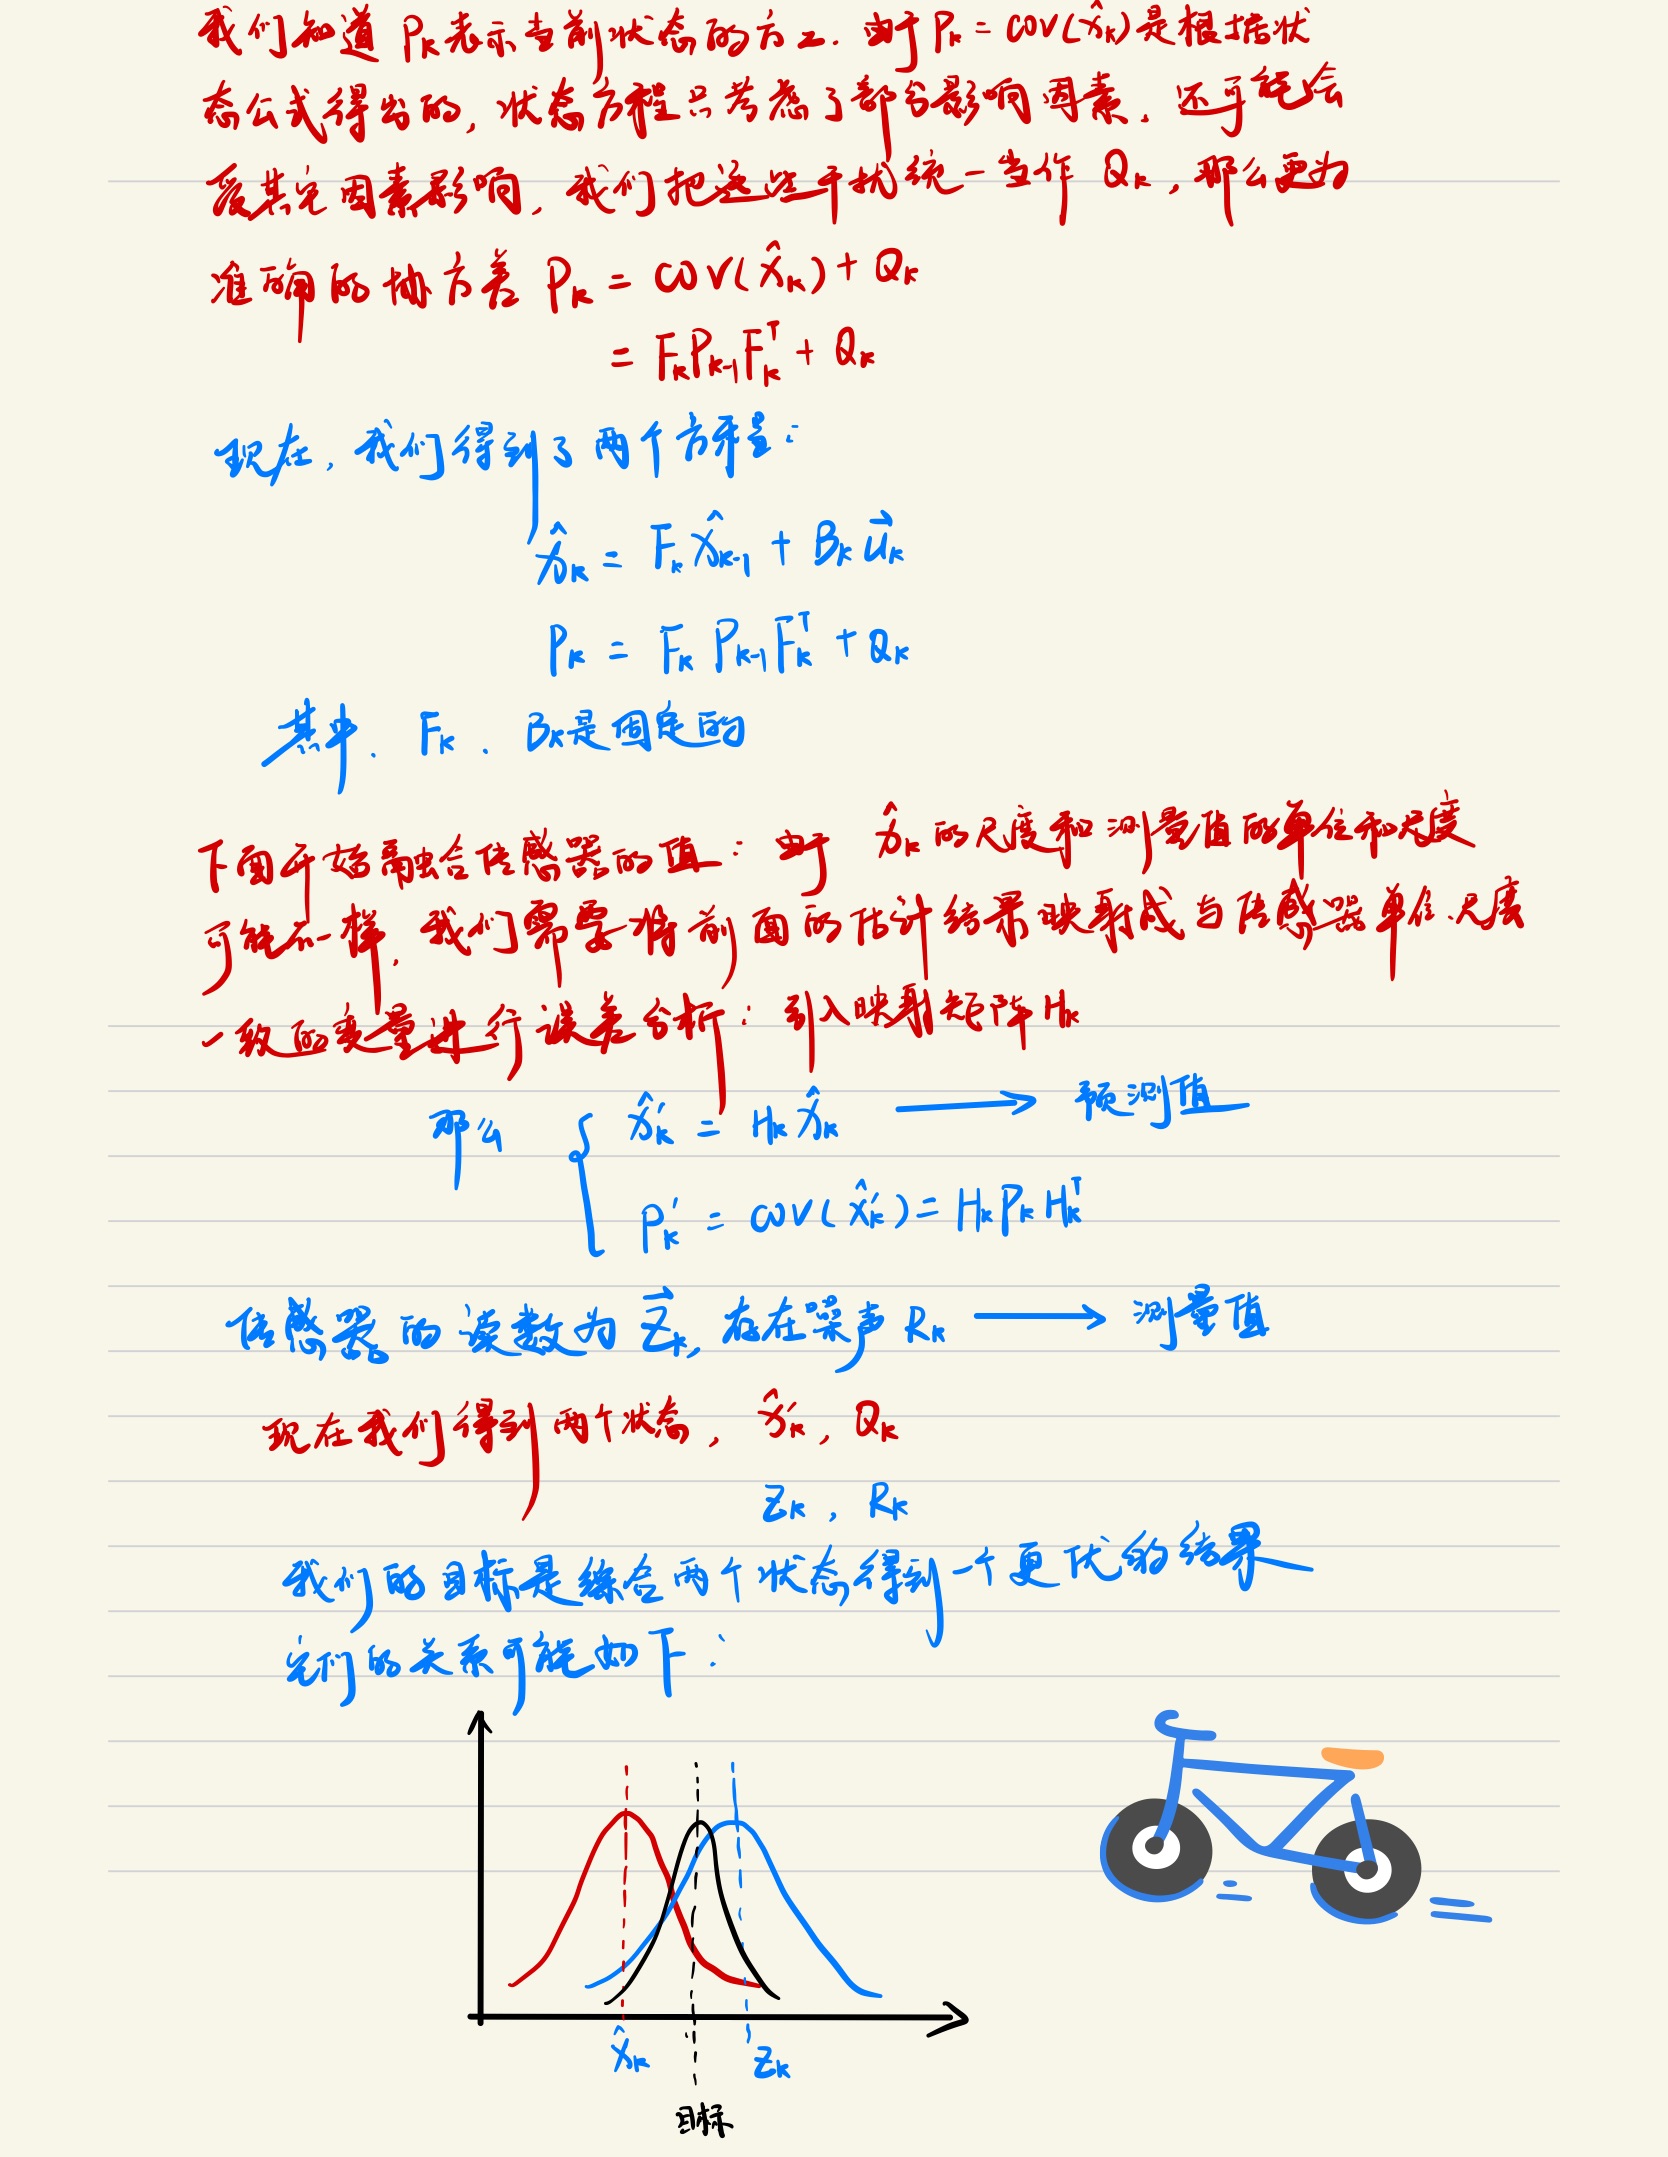 我们知道 Pₖ表示当前状态的方差. 由于 Pₖ = cov(x̂ₖ)是根据状
态公式得出的, 状态方程只考虑了部分影响因素. 还可能会
受其它因素影响, 我们把这些干扰统一当作 Qₖ, 那么更为
准确的协方差 Pₖ = cov(x̂ₖ) + Qₖ
= FₖPₖ₋₁Fₖᵀ + Qₖ
现在, 我们得到了两个方程:
x̂ₖ = Fₖ x̂ₖ₋₁ + Bₖ u⃗ₖ
Pₖ = Fₖ Pₖ₋₁ Fₖᵀ + Qₖ
其中. Fₖ . Bₖ是固定的
下面开始融合传感器的值: 由于 x̂ₖ的尺度和测量值的单位和尺度
可能不一样, 我们需要将前面的估计结果映射成与传感器单位.尺度
一致的变量进行误差分析: 引入映射矩阵Hₖ
那么 { x̂ₖ′ = Hₖ x̂ₖ → 预测值
Pₖ′ = cov(x̂ₖ′) = HₖPₖHₖᵀ
传感器的读数为 z⃗ₖ, 存在噪声 Rₖ → 测量值
现在我们得到两个状态, x̂ₖ′, Qₖ
Zₖ, Rₖ
我们的目标是综合两个状态得到一个更优的结果
它们的关系可能如下:
x̂ₖ
Zₖ
目标